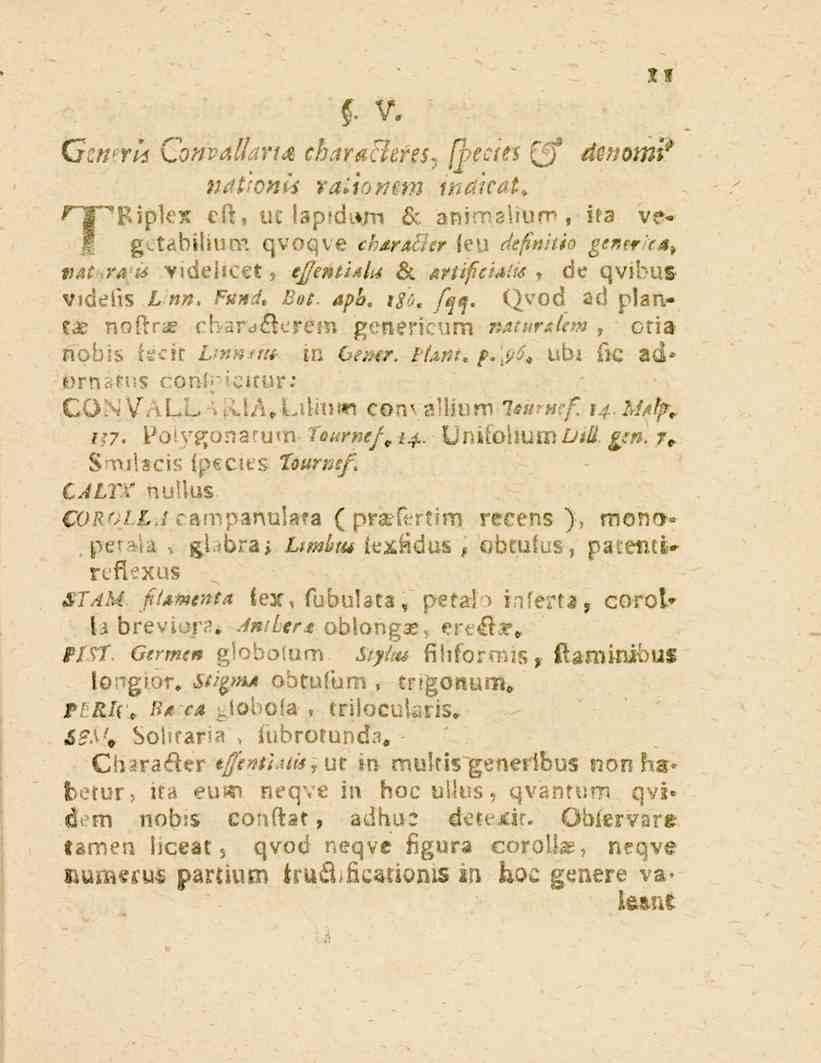 11
§. V.
Generis Convallariæ characteres, species & denomi-
nationis rationem indicat.
TRiplex est, ut lapidum & animalium, ita ve-
getabilium qvoqve character seu definitio generica,
naturalis videlicet, essentialis & artificialis, de qvibus
videsis Linn. Fund. Bot. aph. 186. sqq. Qvod ad plan-
tæ nostræ characterem genericum naturalem, otia
nobis fecit Linnæus in Gener. Plant. p. 96. ubi sic ad-
ornatus conspicitur:
CONVALLARIA. Lilium convallium Tournef. 14. Malp.
137. Polygonatum Tournef. 14. Unifolium Dill. gen. 7.
Smilacis species Tournef.
CALYX nullus
COROLLA campanulata (præsertim recens), mono-
petala, glabra; Limbus sexfidus, obtusus, patenti-
reflexus
STAM. filamenta sex, subulata, petalo inserta, corol-
la breviora. Antheræ oblongæ, erectæ.
PIST. Germen globosum Stylus filiformis, staminibus
longior. Stigma obtusum, trigonum.
PERIC. Bacca globosa, trilocularis.
SEM. Solitaria, subrotunda.
Character essentialis, ut in multis generibus non ha-
betur, ita eum neqve in hoc ullus, qvantum qvi-
dem nobis constat, adhuc detexit. Observare
tamen liceat, qvod neqve figura corollæ, neqve
numerus partium fructificationis in hoc genere va-
leant